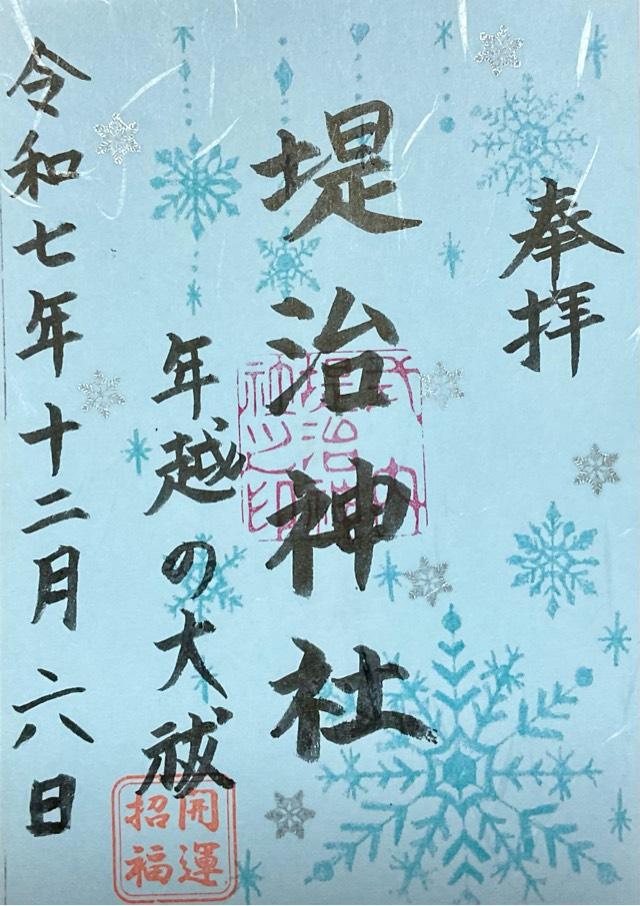 奉拝
堤治神社
年越の大祓
令和七年十二月六日
開運
招福